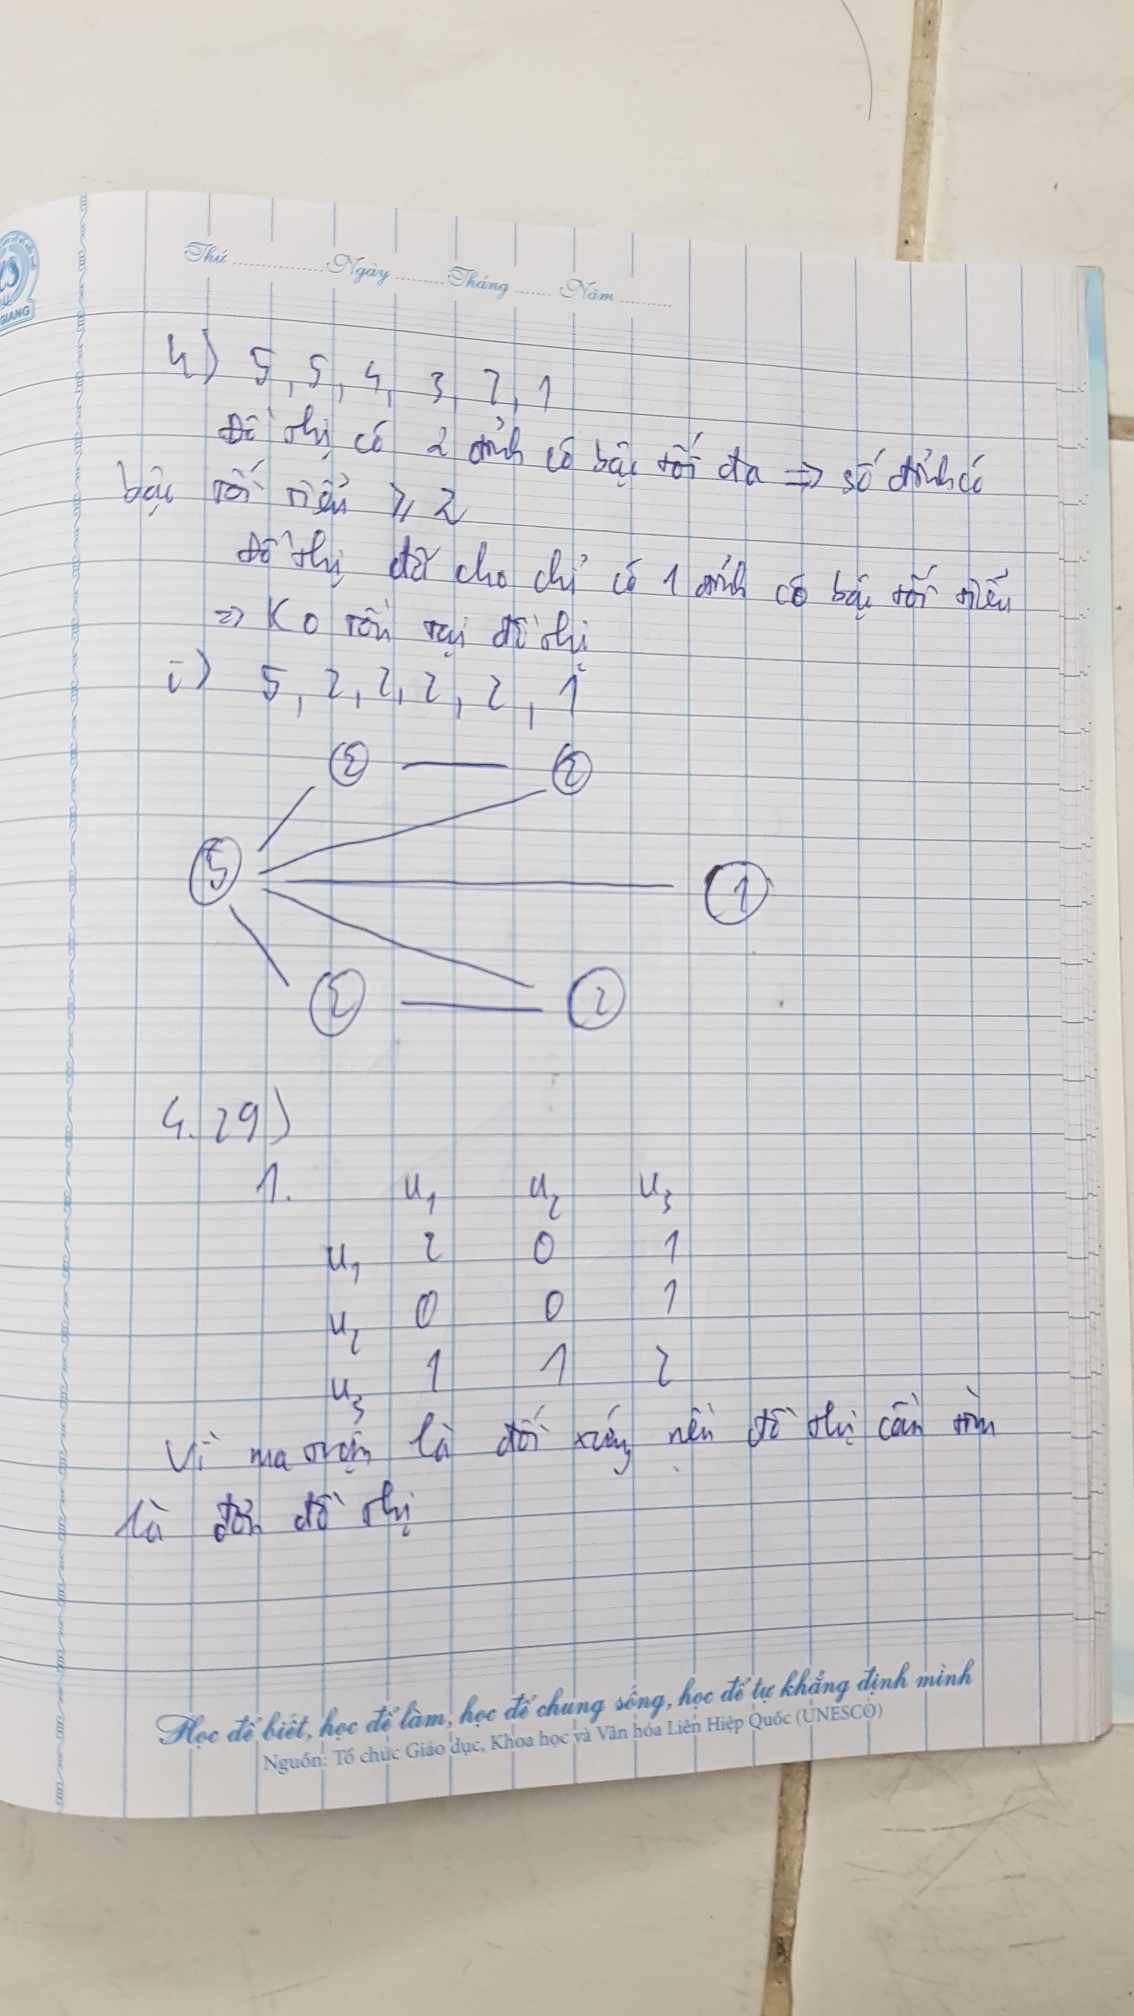 GIANG
Thứ ............... Ngày ........ Tháng ...... Năm .........
h) 5, 5, 4, 3, 2, 1
Đồ thị có 2 đỉnh có bậc tối đa => số đỉnh có
bậc tối tiểu ≥ 2
Đồ thị đã cho chỉ có 1 đỉnh có bậc tối tiểu
=> Ko tồn tại đồ thị
i) 5, 2, 2, 2, 2, 1
2 2
5 1
2 2
4.29)
1. u1 u2 u3
u1 2 0 1
u2 0 0 1
u3 1 1 2
Vì ma trận là đối xứng nên đồ thị cần tìm
là đơn đồ thị
Học để biết, học để làm, học để chung sống, học để tự khẳng định mình
Nguồn: Tổ chức Giáo dục, Khoa học và Văn hóa Liên Hiệp Quốc (UNESCO)